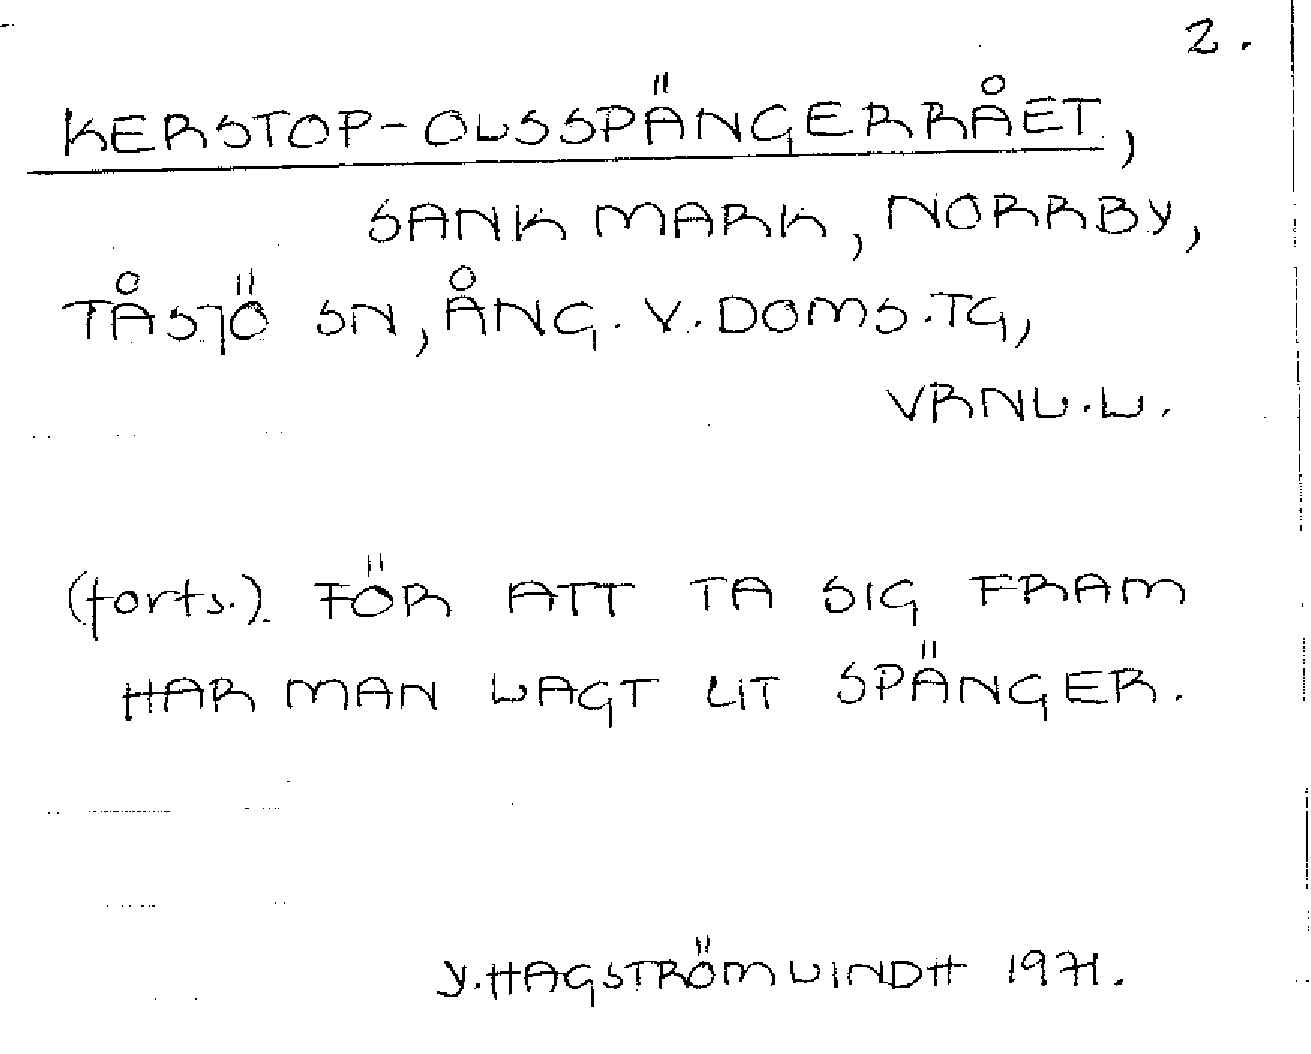 2.
KERSTOP-OLSSPÄNGERRÅET,
SANK MARK, NORRBY,
TÅSJÖ SN, ÅNG. V. DOMS.TG,
VRNL.L.
(forts.). FÖR ATT TA SIG FRAM
HAR MAN LAGT LIT SPÄNGER.
Y.HAGSTRÖM LINDH 1971.